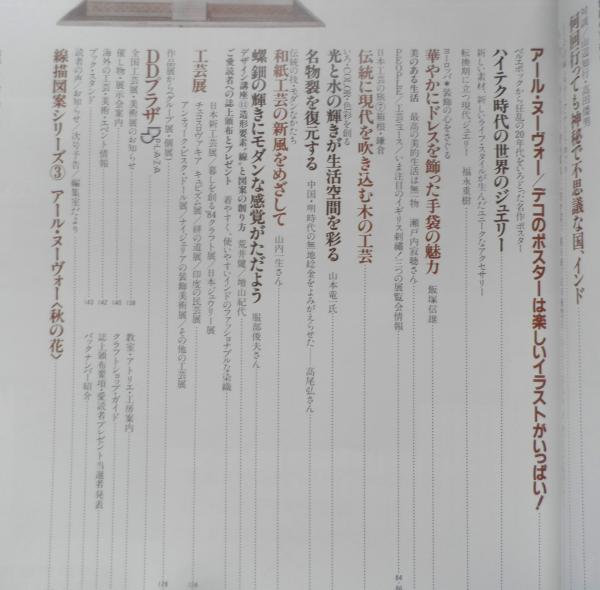 何回行っても神秘で不思議な国、インド
アール・ヌーヴォー/デコのポスターは楽しいイラストがいっぱい!
ベルエポックから狂乱の20年代をいろどった名作ポスター
ハイ・テク時代の世界のジュエリー
新しい素材、新しいライフ・スタイルが生んだユニークなアクセサリー
転換期に立つ現代ジュエリー 福永重樹
ヨーロッパ・装飾の心をさぐる
華やかにドレスを飾った手袋の魅力 飯塚信雄
美のある生活 最高の美的生活は無一物 瀬戸内寂聴さん
PEOPLE/工芸ニュース/いま注目のイギリス刺繍!二つの展覧会情報
日本工芸の旅⑦箱根・鎌倉
伝統に現代を吹き込む木の工芸
いろ・COLOR・色彩を創る
光と水の輝きが生活空間を彩る 山本竜一氏
名物裂を復元する 中国・明時代の無地絵金をよみがえらせた 高尾弘さん
伝統の技・モダンなかたち
和紙工芸の新風をめざして 山内一生さん
螺鈿の輝きにモダンな感覚がただよう 服部俊夫さん
デザイン講座⑪造形要素・線・と図案の創り方 荒井健/増山紀代
ご愛読者への誌上頒布とプレゼント 着やすく、使いやすいインドのファッショナブルな染織
工芸展
日本新工芸展/暮しを創る'84クラフト展/日本ジュウリー展
チェコスロヴァキア キュビズム展/絣の道展/印度の民芸展
アンティークビスク・ドール展/ナイジェリアの装飾美術展/その他の工芸展
作品展から(グループ展・個展)
DDプラザ
PLAZA
全国工芸展・美術展のお知らせ
催し物・展示会案内
海外の工芸・美術・イベント情報
ブック・スタンド
読者の声/お知らせ/次号予告/編集室だより
138
140
142
143
教室・アトリエ・工房案内
クラフトショップ・ガイド
誌上頒布要項・愛読者プレゼント当選者発表
バックナンバー紹介
線描図案シリーズ③ アール・ヌーヴォー〈秋の花〉
84
128